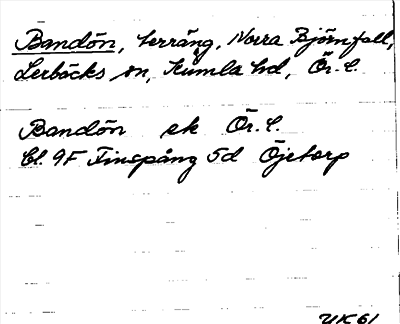 Bandön, terräng, Norra Björnfall,
Lerbäcks sn, Kumla hd, Ör. l.
Bandön ek Ör. l.
Bl. 9F Finspång 5d Öjetorp
UK 61